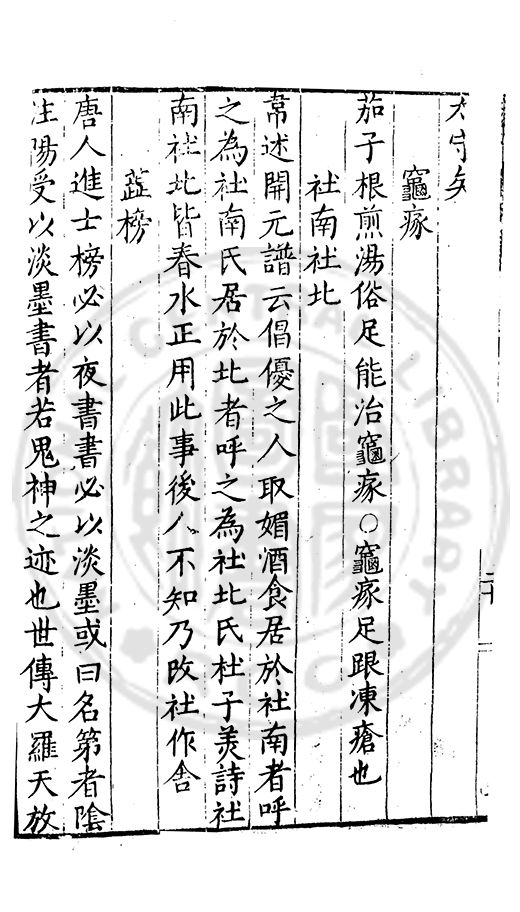 竈瘃
茄子根煎湯俗足能治竈瘃○竈瘃足跟凍瘡也
社南社北
常述開元譜云倡優之人取媚酒食居於社南者呼
之為社南氏居於北者呼之為社北氏杜子美詩社
南社北皆春水正用此事後人不知乃改社作舍
蕋榜
唐人進士榜必以夜書書必以淡墨或曰名第者陰
注陽受以淡墨書者若鬼神之迹也世傳大羅天放